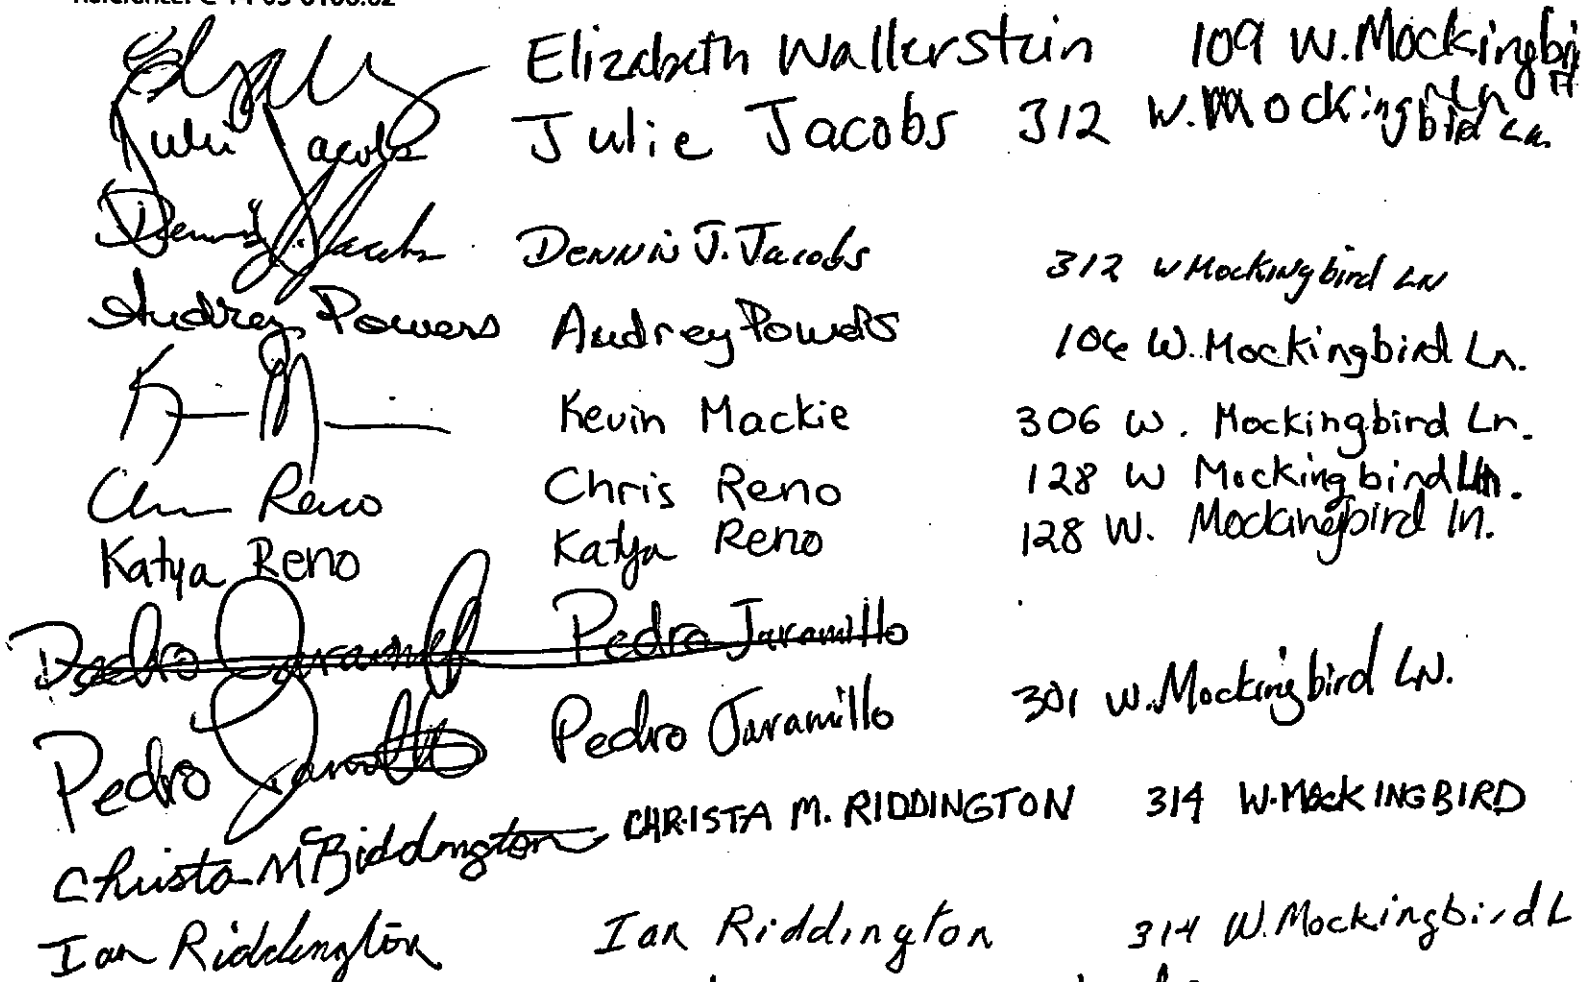 Elizabeth Wallerstein 109 W. Mockingbi
Julie Jacobs Julie Jacobs 312 W. Mockingbird Ln.
Dennis J. Jacobs Dennis J. Jacobs 312 W Mockingbird LN
Audrey Powers Audrey Powers 106 W. Mockingbird Ln.
Kevin Mackie 306 W. Mockingbird Ln.
Chris Reno Chris Reno 128 W Mockingbird Ln.
Katya Reno Katya Reno 128 W. Mockingbird ln.
Pedro Jaramillo Pedro Jaramillo
Pedro Jaramillo Pedro Jaramillo 301 W. Mockingbird LN.
Christa M Riddington CHRISTA M. RIDDINGTON 314 W. MOCKINGBIRD
Ian Riddington Ian Riddington 314 W. Mockingbird L